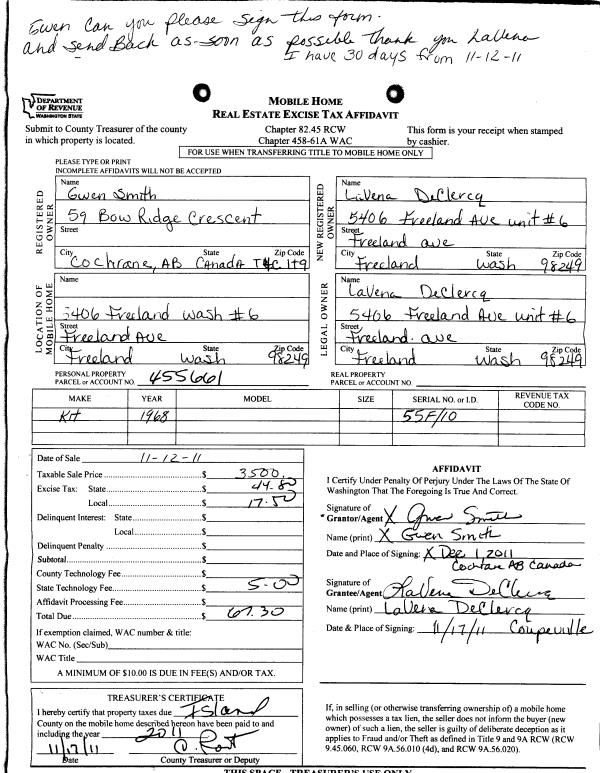 Gwen Can you please sign this form.
and send Back as soon as possible thank you LaVena
I have 30 days from 11-12-11
DEPARTMENT
OF REVENUE
WASHINGTON STATE
MOBILE HOME
REAL ESTATE EXCISE TAX AFFIDAVIT
Submit to County Treasurer of the county
in which property is located.
Chapter 82.45 RCW
Chapter 458-61A WAC
This form is your receipt when stamped
by cashier.
FOR USE WHEN TRANSFERRING TITLE TO MOBILE HOME ONLY
PLEASE TYPE OR PRINT
INCOMPLETE AFFIDAVITS WILL NOT BE ACCEPTED
REGISTERED OWNER
Name
Gwen Smith
59 Bow Ridge Crescent
Street
City State Zip Code
Cochrane, AB Canada T4C 1T9
NEW REGISTERED OWNER
Name
LaVena DeClercq
5406 Freeland Ave unit #6
Street
Freeland ave
City State Zip Code
Freeland Wash 98249
LOCATION OF MOBILE HOME
Name
5406 Freeland Wash #6
Street
Freeland Ave
City State Zip Code
Freeland Wash 98249
LEGAL OWNER
Name
LaVena DeClercq
5406 Freeland Ave unit #6
Street
Freeland. ave
City State Zip Code
Freeland Wash 98249
PERSONAL PROPERTY
PARCEL or ACCOUNT NO. 455661
REAL PROPERTY
PARCEL or ACCOUNT NO.
MAKE YEAR MODEL SIZE SERIAL NO. or I.D. REVENUE TAX CODE NO.
Kit 1968 55F/10
Date of Sale 11-12-11
Taxable Sale Price $ 3500.
Excise Tax: State $ 44.80
Local $ 17.50
Delinquent Interest: State $
Local $
Delinquent Penalty $
Subtotal $
County Technology Fee $
State Technology Fee $ 5.00
Affidavit Processing Fee $
Total Due $ 67.30
If exemption claimed, WAC number & title:
WAC No. (Sec/Sub)
WAC Title
A MINIMUM OF $10.00 IS DUE IN FEE(S) AND/OR TAX.
AFFIDAVIT
I Certify Under Penalty Of Perjury Under The Laws Of The State Of
Washington That The Foregoing Is True And Correct.
Signature of
Grantor/Agent X Gwen Smith
Name (print) X Gwen Smith
Date and Place of Signing: X Dec 1, 2011
Cochrane AB Canada
Signature of
Grantee/Agent LaVena DeClercq
Name (print) LaVena DeClercq
Date & Place of Signing: 11/17/11 Coupeville
TREASURER'S CERTIFICATE
I hereby certify that property taxes due Island
County on the mobile home described hereon have been paid to and
including the year 2011
11/17/11
Date County Treasurer or Deputy
If, in selling (or otherwise transferring ownership of) a mobile home
which possesses a tax lien, the seller does not inform the buyer (new
owner) of such a lien, the seller is guilty of deliberate deception as it
applies to Fraud and/or Theft as defined in Title 9 and 9A RCW (RCW
9.45.060, RCW 9A.56.010 (4d), and RCW 9A.56.020).
THIS SPACE - TREASURER'S USE ONLY